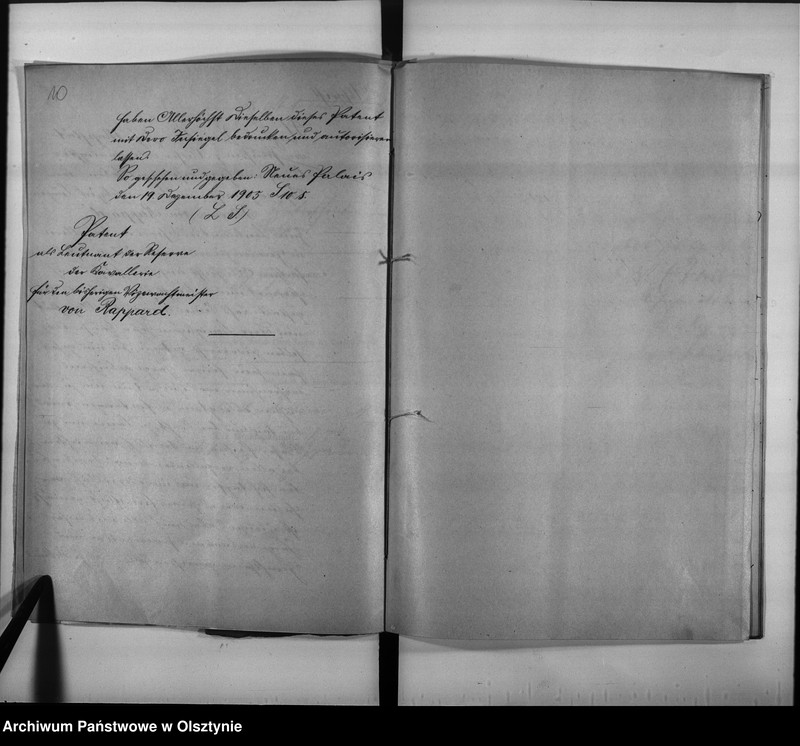 10
haben Allerhöchst Dieselben dieses Patent
mit Dero Insiegel bedrucken und autorisieren
lassen.
So geschehen und gegeben: Neues Palais
den 19. Dezember 1905
(L S)
Patent
als Leutnant der Reserve
der Kavallerie
für den bisherigen Vizewachtmeister
von Rappard.
Archiwum Państwowe w Olsztynie